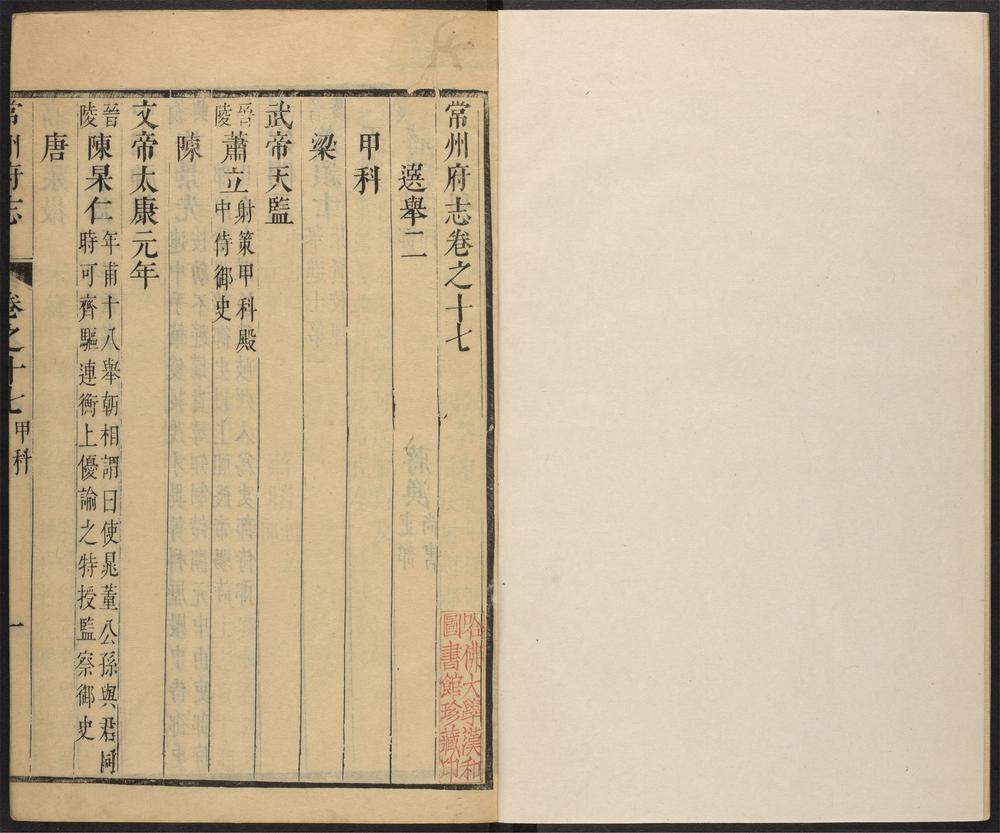 常州府志卷之十七
選舉二
甲科
梁
武帝天監
晉陵 蕭立 射策甲科殿中侍御史
陳
文帝太康元年
晉陵 陳杲仁 年甫十八舉朝相謂曰使晁董公孫與君同時可齊驅連衡上優諭之特授監察御史
唐
常州府志 卷之十七 甲科 一
哈佛大學漢和圖書館珍藏印